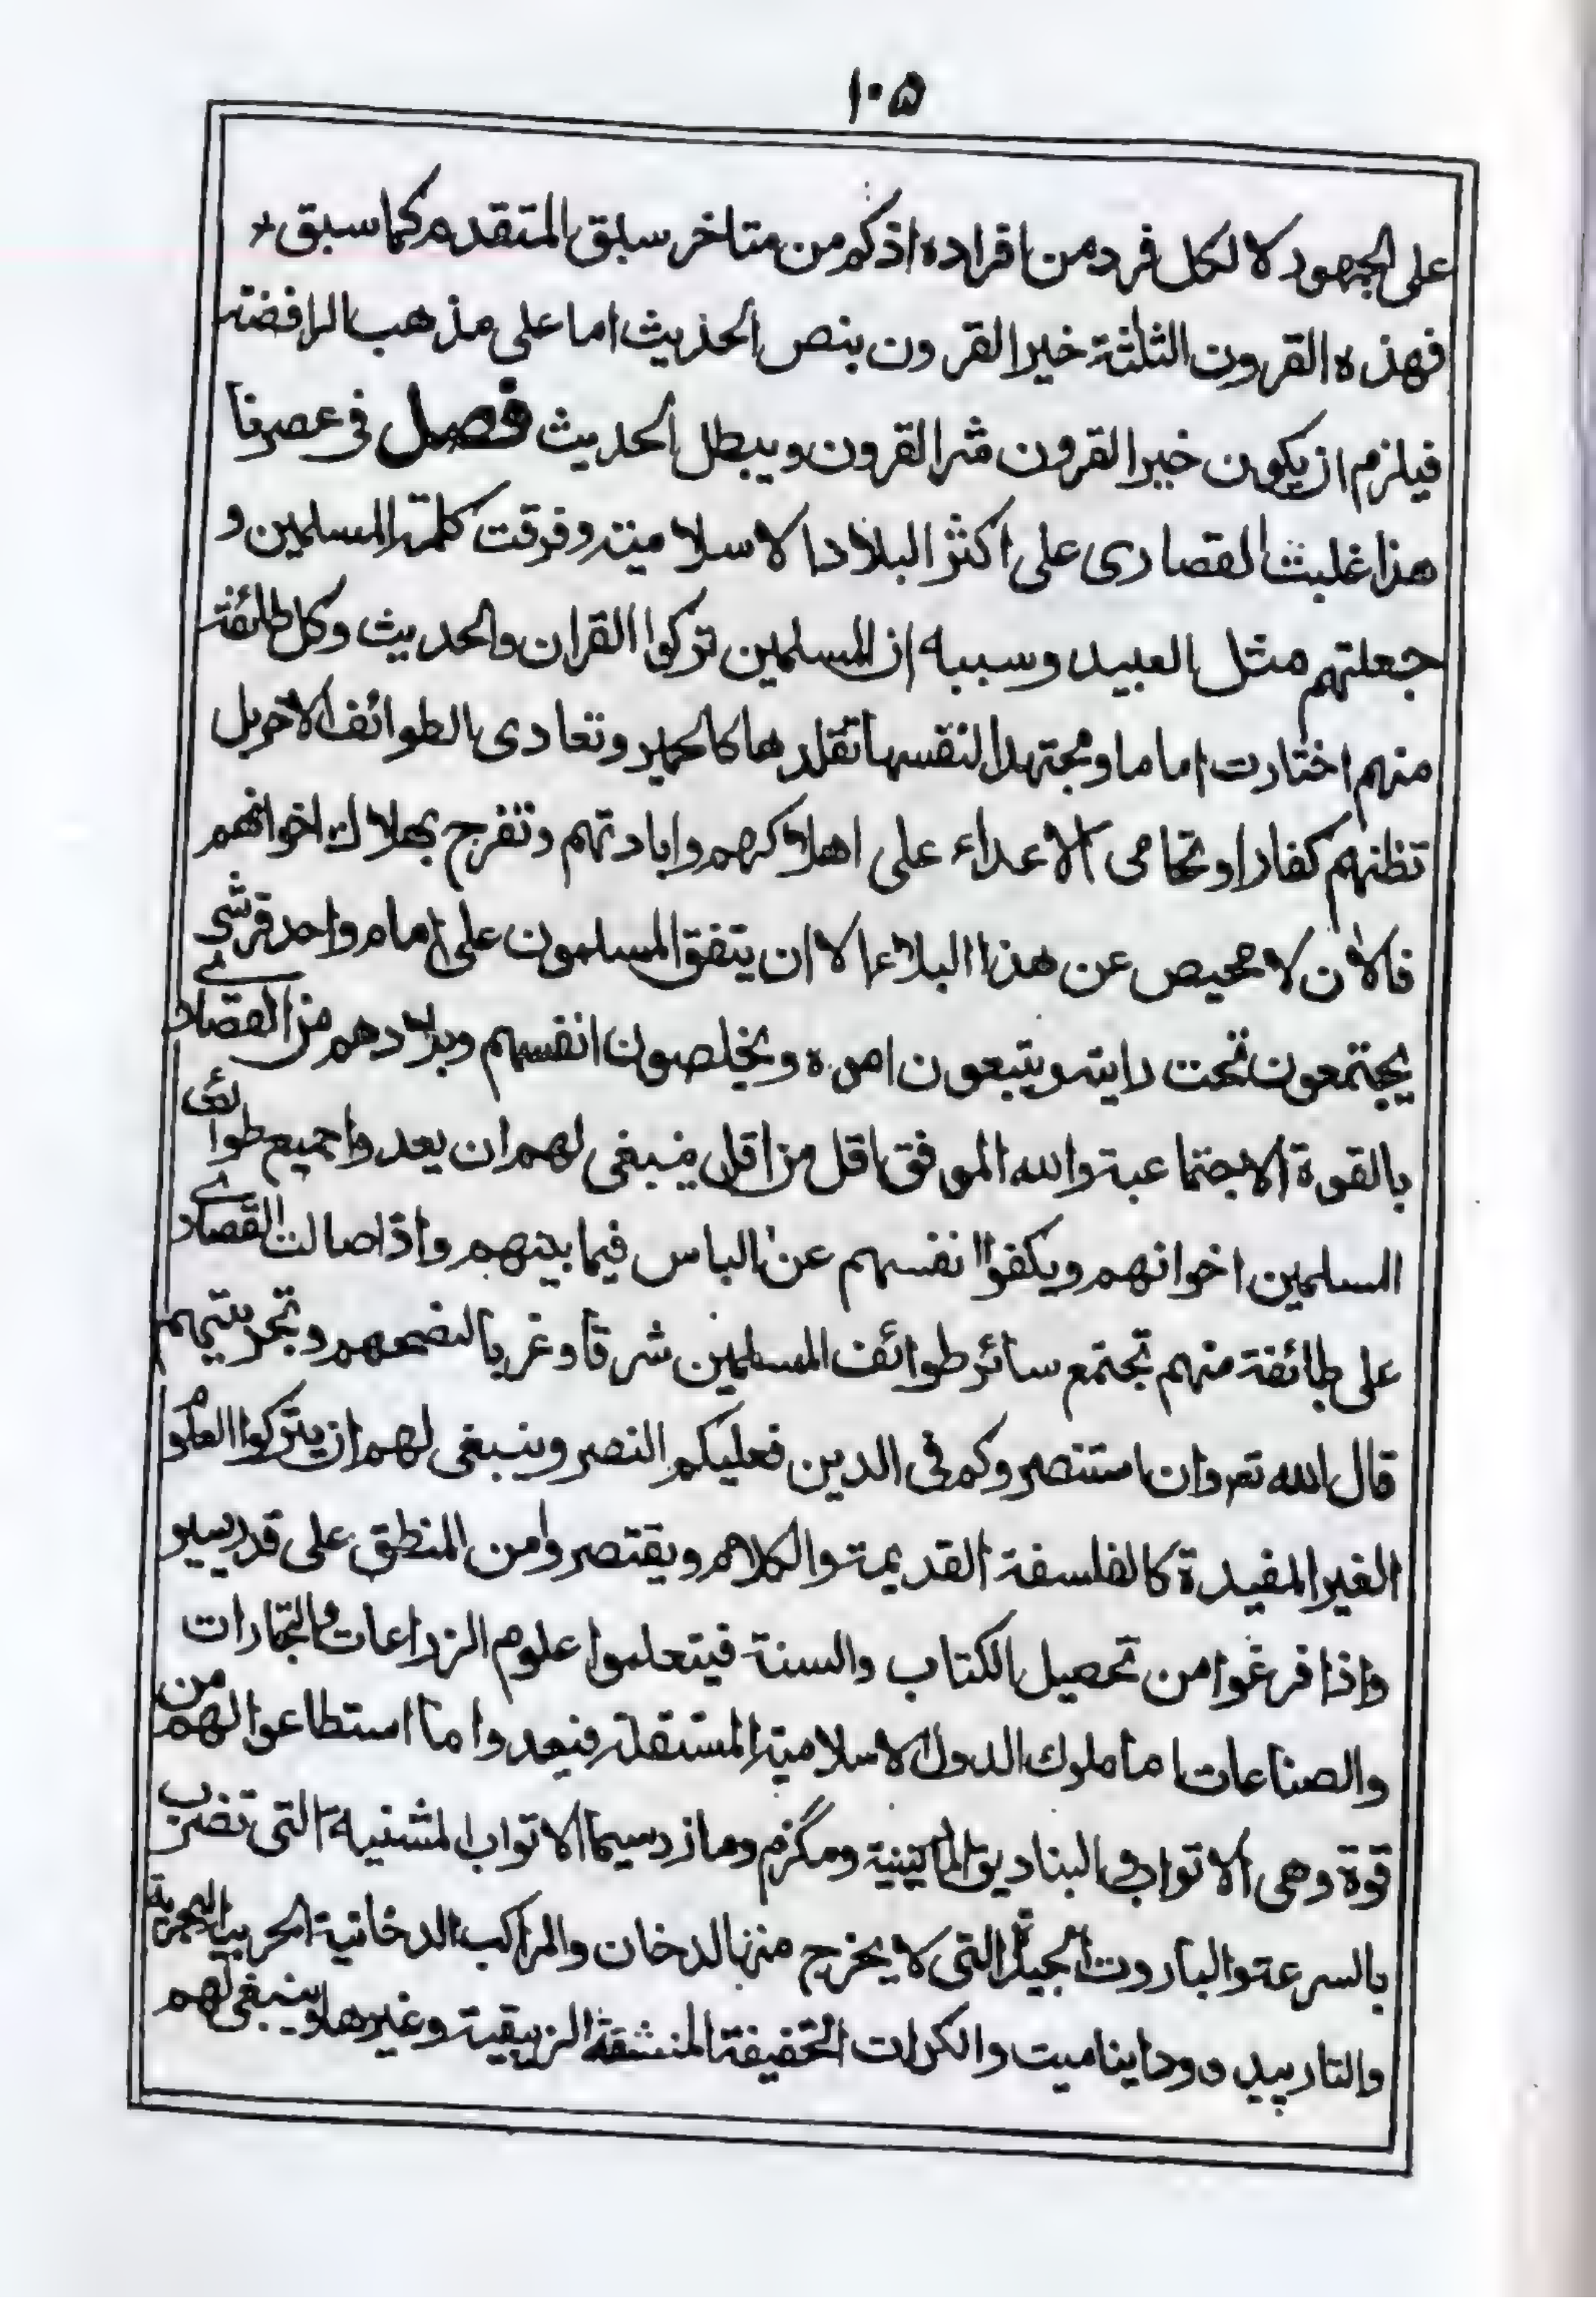 ١٠٥
على الجمهور لا لكل فرد من افراده اذ كم من متاخر سبق المتقدم كما سبق
فهذه القرون الثلثة خير القرون بنص الحديث اما على مذهب الرافضة
فيلزم ان يكون خير القرون شر القرون ويبطل الحديث فصل فى عصرنا
هذا غلبت النصارى على اكثر البلاد الاسلامية وفرقت كلمة المسلمين و
جعلتهم مثل العبيد وسببه ان المسلمين تركوا القران والحديث وكل طائفة
منهم اختارت اماما ومجتهدا لنفسها تقلدها كالحمير وتعادى الطوائف الاخر بل
تظنهم كفارا وتحامى الاعداء على اهلاكهم وابادتهم وتفرح بهلاك اخوانهم
فالان لا محيص عن هذا البلاء الا ان يتفق المسلمون على امام واحد قرشى
يجتمعون تحت رايته ويتبعون امره ويخلصون انفسهم وبلادهم من النصارى
بالقوة الاجتماعية والله الموفق اقل من اقل ينبغى لهم ان يعدوا جميع طوائف
المسلمين اخوانهم ويكفوا انفسهم عن الباس فيما بينهم واذا صالت النصارى
على طائفة منهم تجتمع سائر طوائف المسلمين شرقا وغربا لنصرهم وتجريتهم
قال الله تعر وان استنصروكم فى الدين فعليكم النصر وينبغى لهم ان يتركوا العلوم
الغير المفيدة كالفلسفة القديمة والكلام ويقتصروا من المنطق على قدر يسير
واذا فرغوا من تحصيل الكتاب والسنة فيتعلموا علوم الزراعات والتجارات
والصناعات اما ملوك الدول الاسلامية المستقلة فيعدوا ما استطاعوا لهم من
قوة وهى الاتواب والبناديق الماكينية ومگزم وماذر سيما الاتواب المشنية التى تضرب
بالسرعة والباروت الجيد التى لا يخرج منها الدخان والمراكب الدخانية الحربية البحرية
والتارپيدو وداينا ميت والكرات الخفيفة المنشقة الزيبقية وغيرها وينبغى لهم